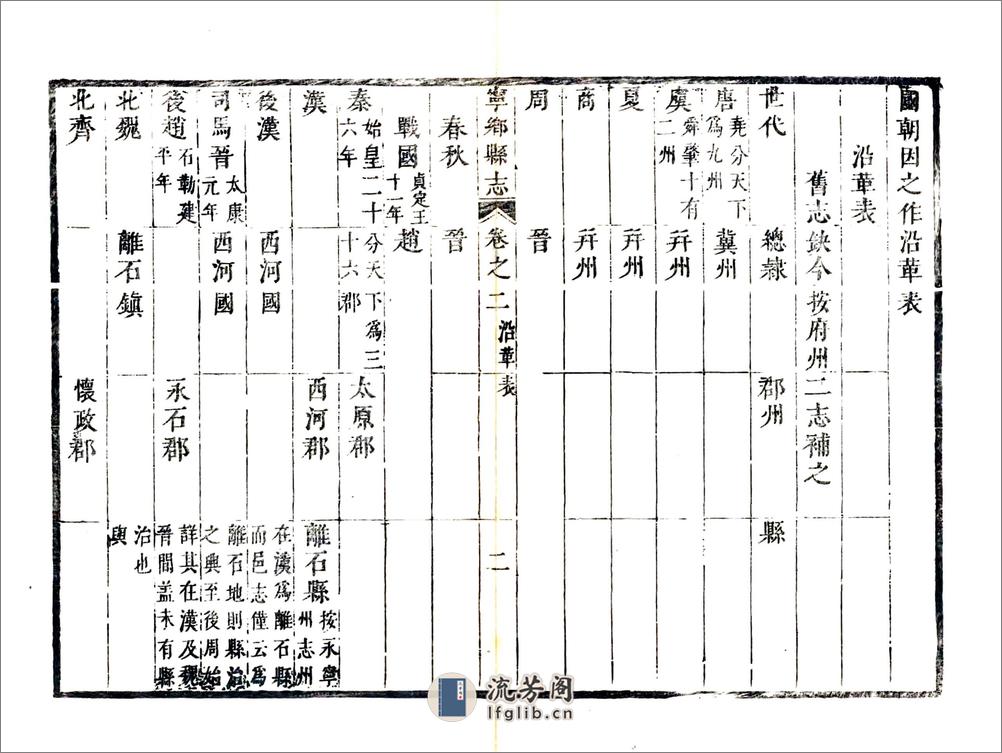 國朝因之作沿革表
沿革表
舊志缺今按府州二志補之
世代 總隸 郡州 縣
唐 堯分天下爲九州 冀州
虞 舜肇十有二州 幷州
夏 幷州
商 幷州
周 晉
寧鄉縣志 卷之二 沿革表 二
春秋 晉
戰國 貞定王十一年 趙
秦 始皇二十六年 分天下爲三十六郡 太原郡
漢 西河郡 離石縣 按永寧州志州
後漢 西河國 在漢爲離石縣而邑志僅云爲
司馬晉 太康元年 西河國 離石地則縣治之興至後周始
後趙 石勒建平年 永石郡 詳其在漢及魏晉間盖未有縣
北魏 離石鎮 治也
與
北齊 懷政郡
流芳阁
lfglib.cn